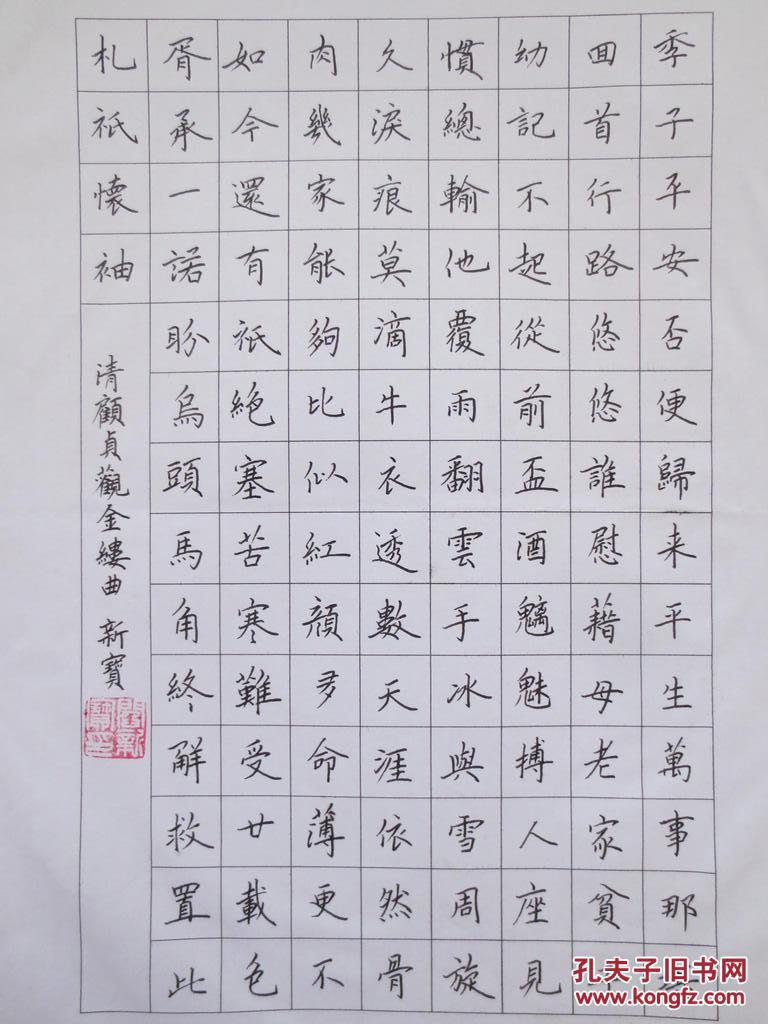 季子平安否便歸来平生萬事那
囬首行路悠悠誰慰藉母老家貧
幼記不起從前盃酒魑魅搏人座見
慣總輸他覆雨翻雲手冰與雪周旋
久淚痕莫滴牛衣透數天涯依然骨
肉幾家能夠比似紅顔多命薄更不
如今還有祇絶塞苦寒難受廿載色
胥承一諾盼烏頭馬角終解救置此
札祇懷袖
清顧貞觀金縷曲 新寶
孔夫子旧书网
www.kongfz.com